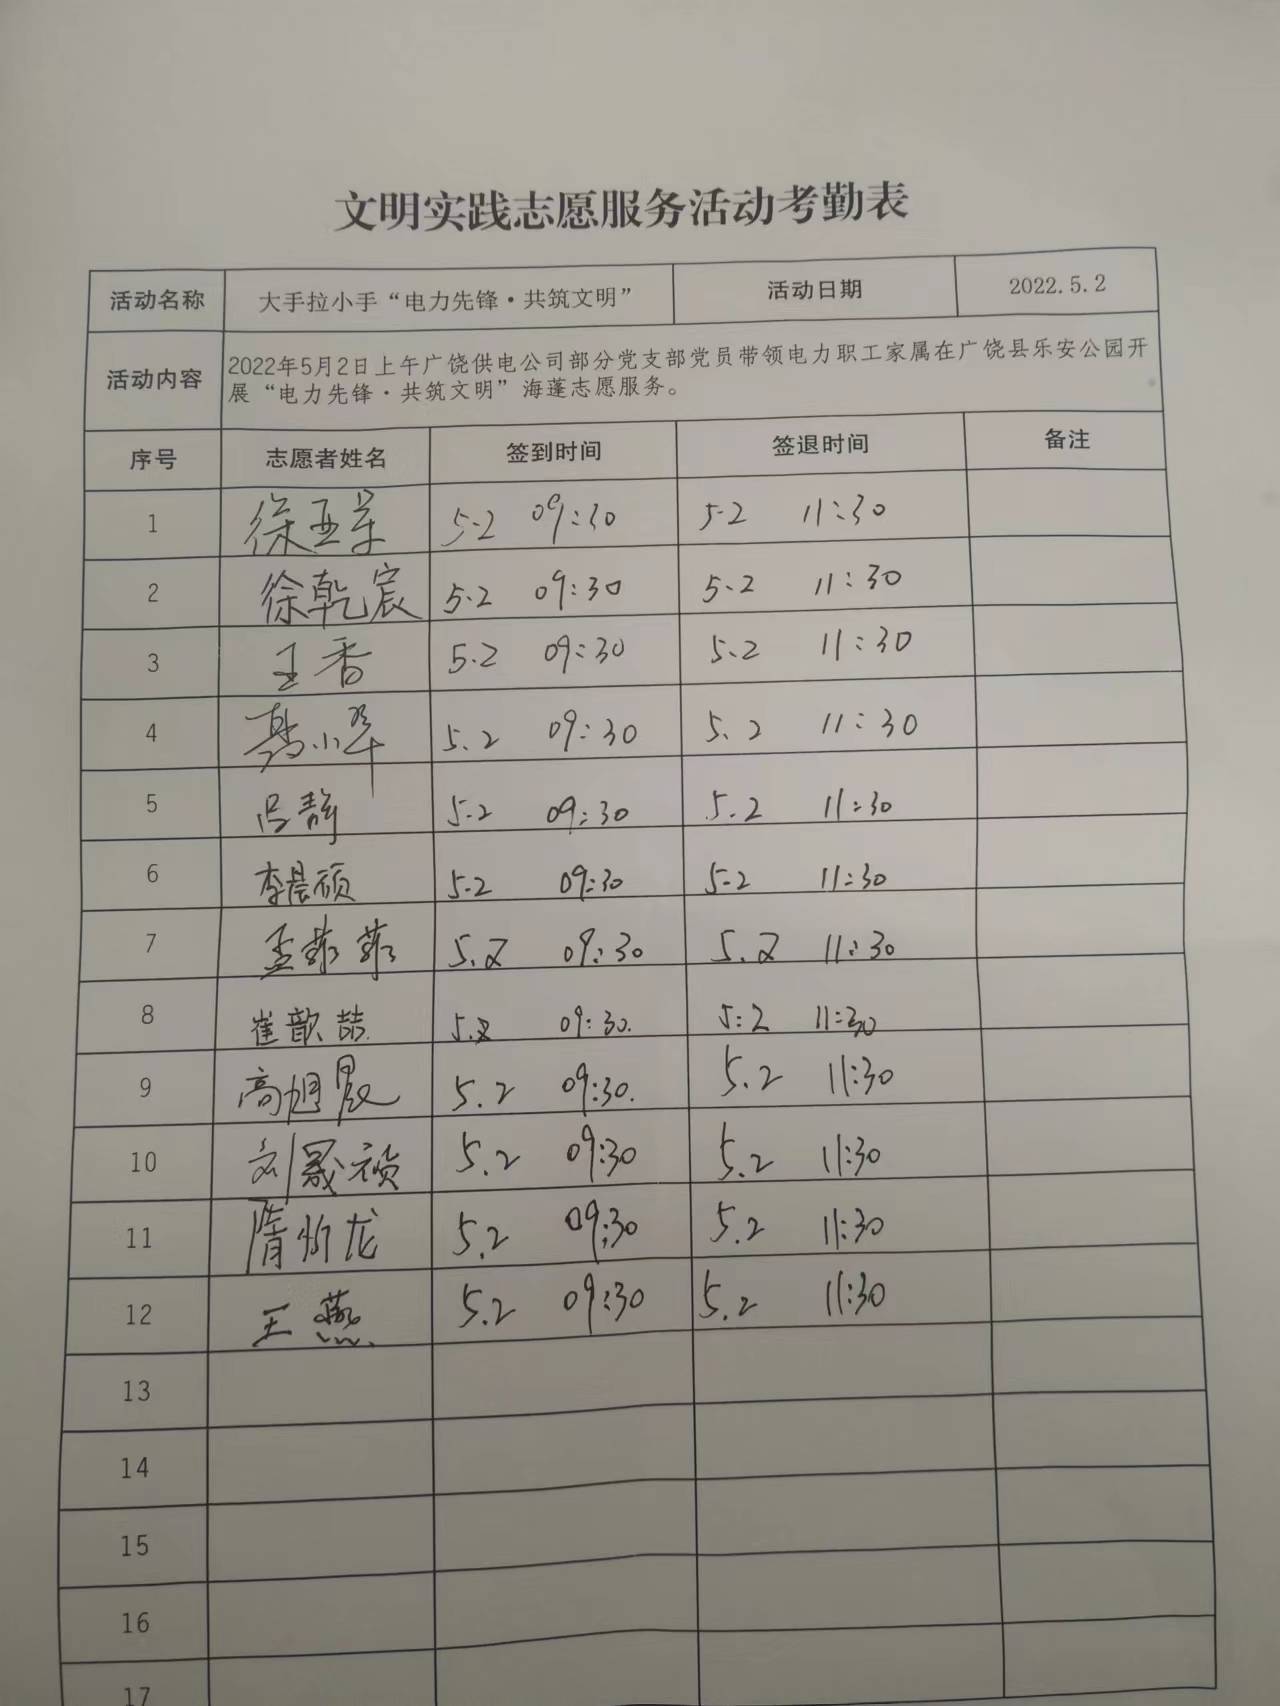 文明实践志愿服务活动考勤表
活动名称 大手拉小手“电力先锋·共筑文明” 活动日期 2022.5.2
活动内容 2022年5月2日上午广饶供电公司部分党支部党员带领电力职工家属在广饶县乐安公园开
展“电力先锋·共筑文明”海蓬志愿服务。
序号 志愿者姓名 签到时间 签退时间 备注
1 徐亚军 5.2 09:30 5.2 11:30
2 徐乾宸 5.2 09:30 5.2 11:30
3 王香 5.2 09:30 5.2 11:30
4 小翠 5.2 09:30 5.2 11:30
5 吕静 5.2 09:30 5.2 11:30
6 李晨硕 5.2 09:30 5.2 11:30
7 孟菲菲 5.2 09:30 5.2 11:30
8 崔歆喆 5.2 09:30. 5:2 11:30
9 高旭晨 5.2 09:30. 5.2 11:30
10 刘晟祯 5.2 09:30 5.2 11:30
11 隋忻龙 5.2 09:30 5.2 11:30
12 王燕 5.2 09:30 5.2 11:30
13
14
15
16
17